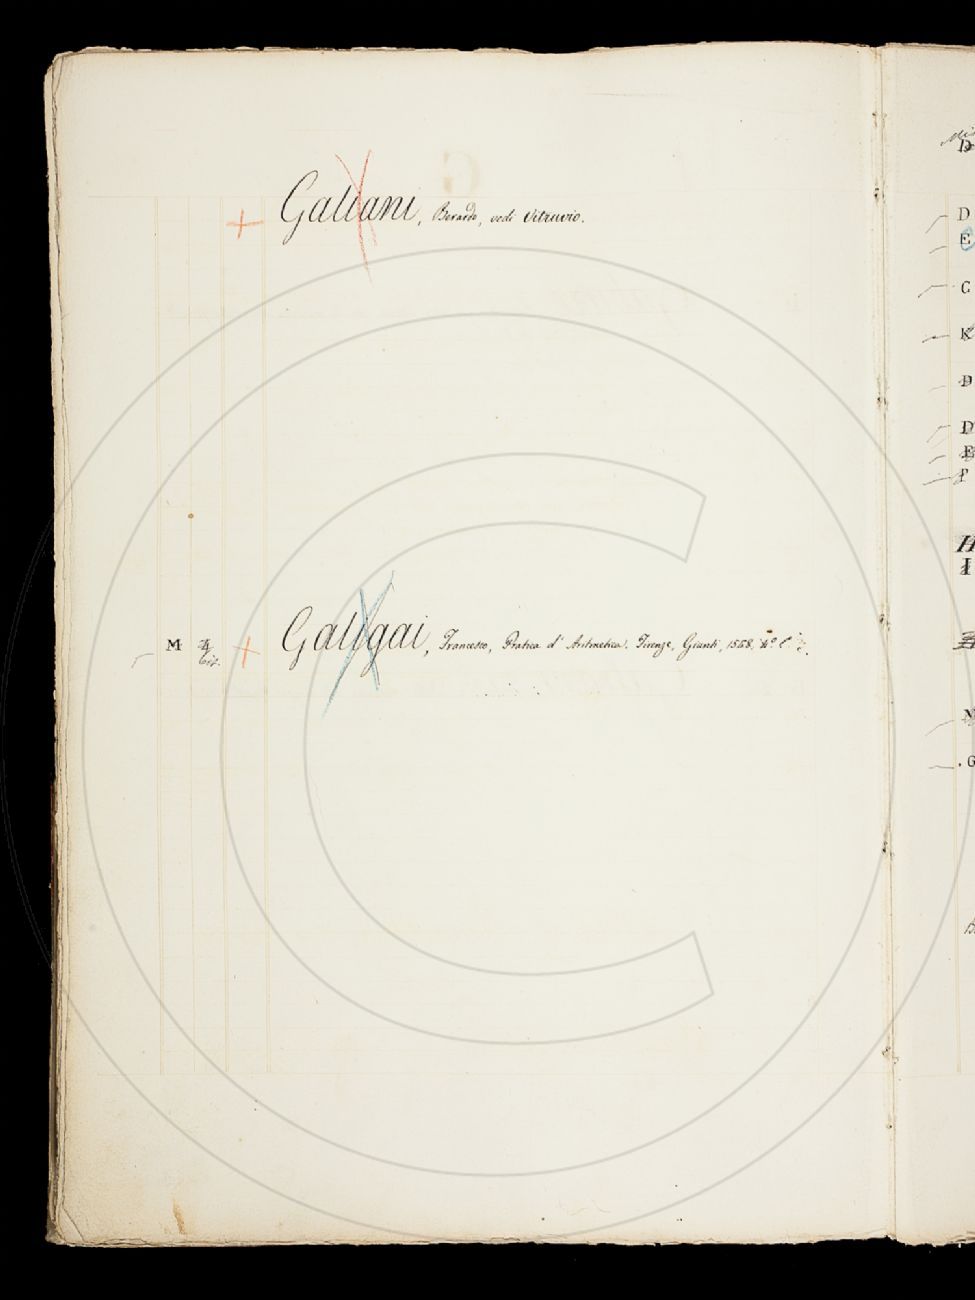 G
Galiani, Berardo, vedi Vitruvio.
M 4 bis. Galigai, Francesco, Pratica d' Aritmetica. Firenze, Giunti, 1548. 4.º
D
D
E
G
K
D
D
E
F
H
I
N
.G